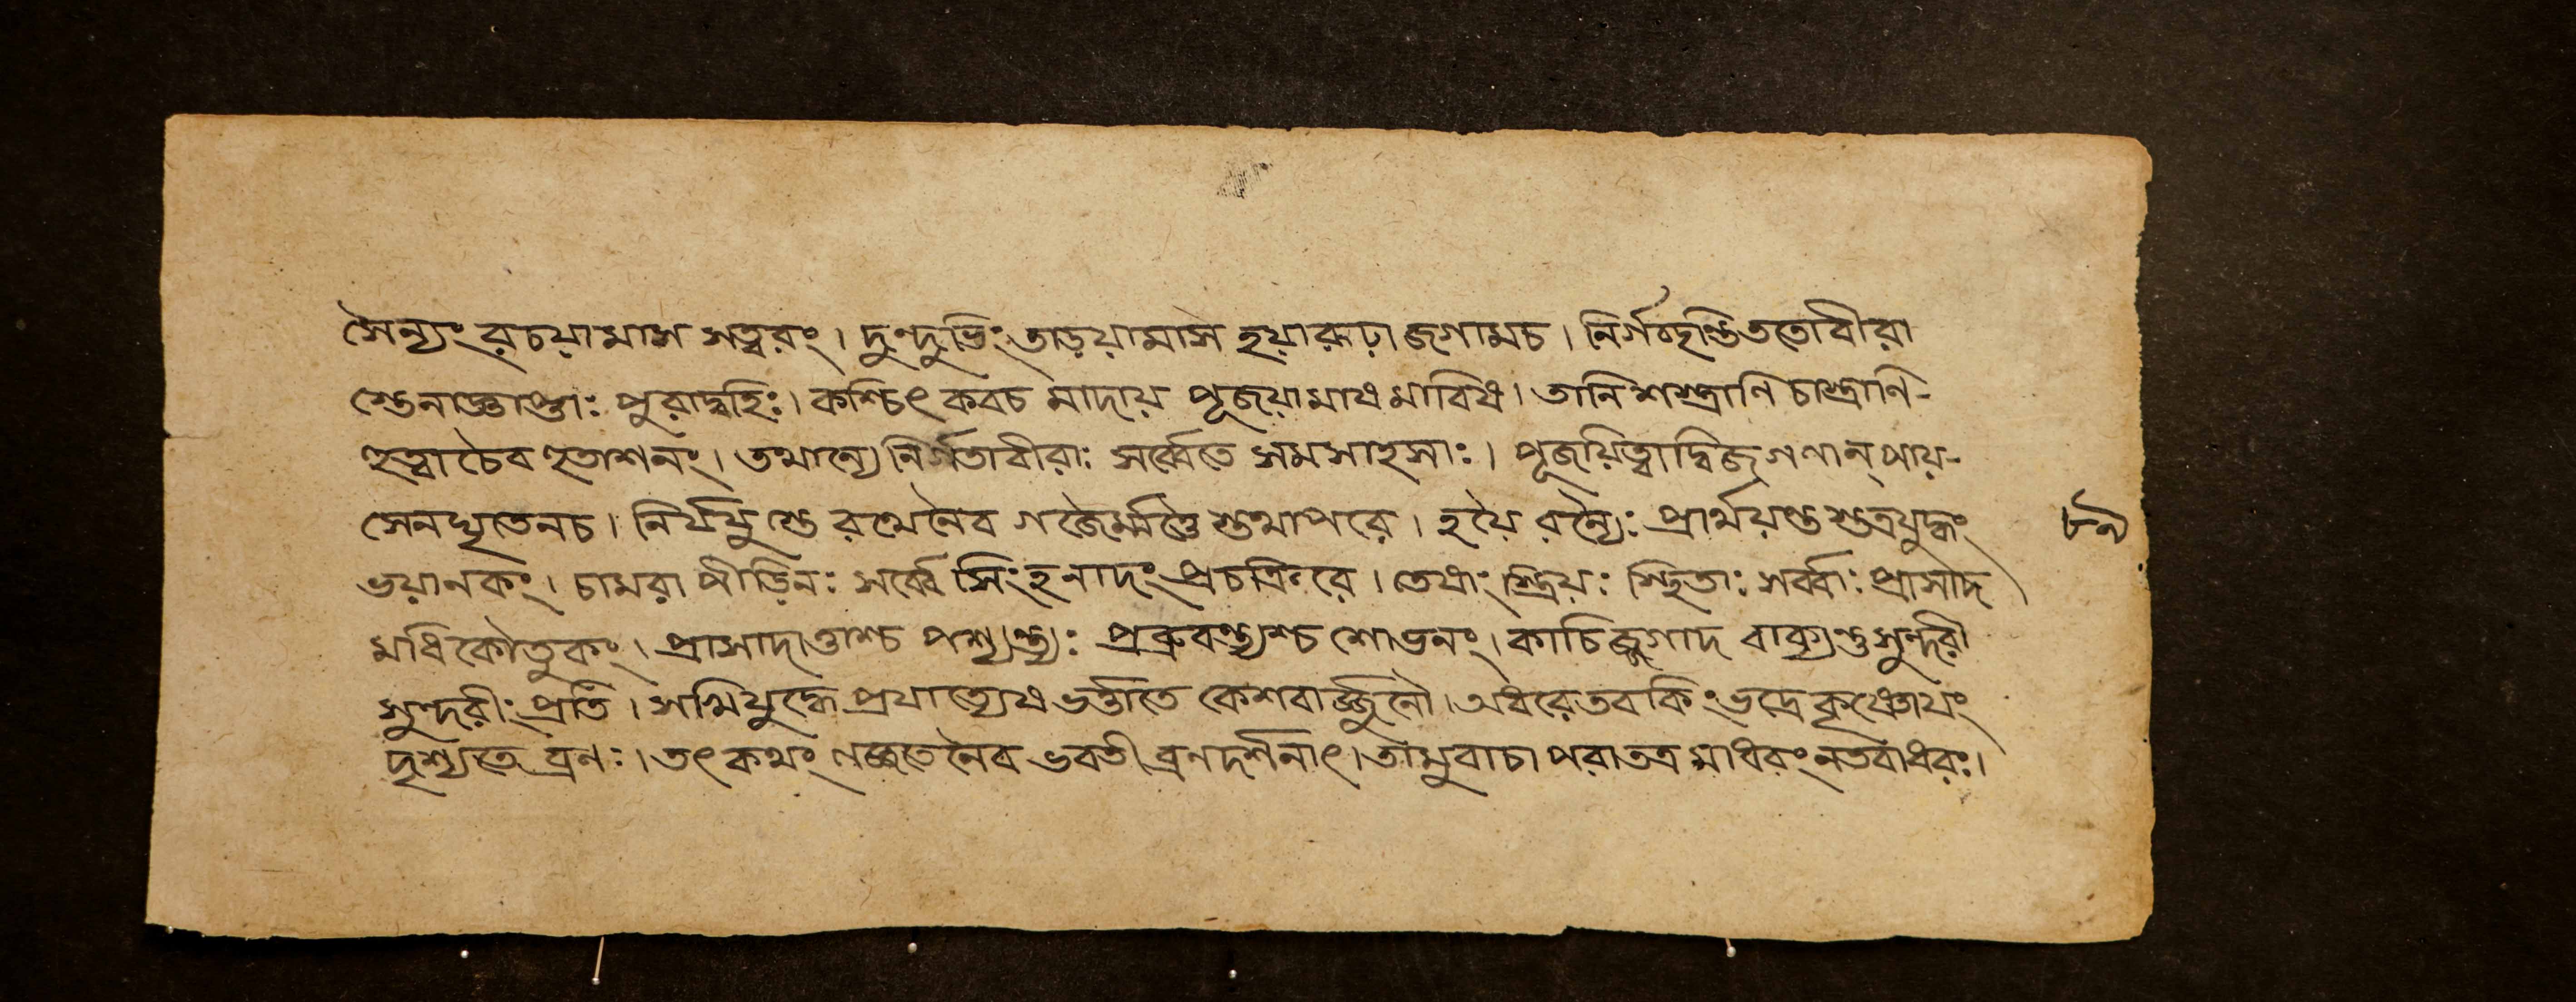 সৈন্যং রচয়ামাস সত্বরং। দুন্দুভিং তাড়য়ামাস হয়ারূঢ়া জগামচ। নির্গচ্ছন্তিততোবীরা
স্তেনাজ্ঞাপ্তাঃ পুরাদ্বহিঃ। কশ্চিৎ কবচ মাদায় পূজয়ামাষ মাবিষ। তানি শস্ত্রাণি চাস্ত্রাণি-
হুত্বা চৈব হুতাশনং। তথান্যে নির্গতাবীরাঃ সর্ব্বেতে সমসাহসাঃ। পূজয়িত্বাদ্বিজগণান্ পায়-
সেনঘৃতেনচ। নির্যযুস্তে রথেনৈব গজৈর্ম্মত্তৈ স্তথাপরে। হয়ৈ রন্যৈঃ প্রার্থয়ন্ত স্তত্রযুদ্ধং
ভয়ানকং। চামরা পীড়িনঃ সর্ব্বে সিংহনাদং প্রচক্রিরে। তেষাং স্ত্রিয়ঃ স্থিতাঃ সর্ব্বাঃ প্রাসাদ
মধিকৌতুকং। প্রাসাদাত্তাশ্চ পশ্যন্ত্যঃ প্রব্রুবন্ত্যশ্চ শোভনং। কাচিজ্জগাদ বাক্যন্তুসুন্দরী
সুন্দরীং প্রতি। সখিযুদ্ধে প্রযাত্যেষ ভর্ত্তাতে কেশবার্জ্জুনৌ। অধরেতবকিং ভদ্রে কৃষ্ণোযং
দৃশ্যতে ব্রনঃ। তৎ কথং লজ্জতে নৈব ভবতী ব্রনদর্শনাৎ। তামুবাচা পরাতত্র মাধিরং নতবাধরং।
৮৯